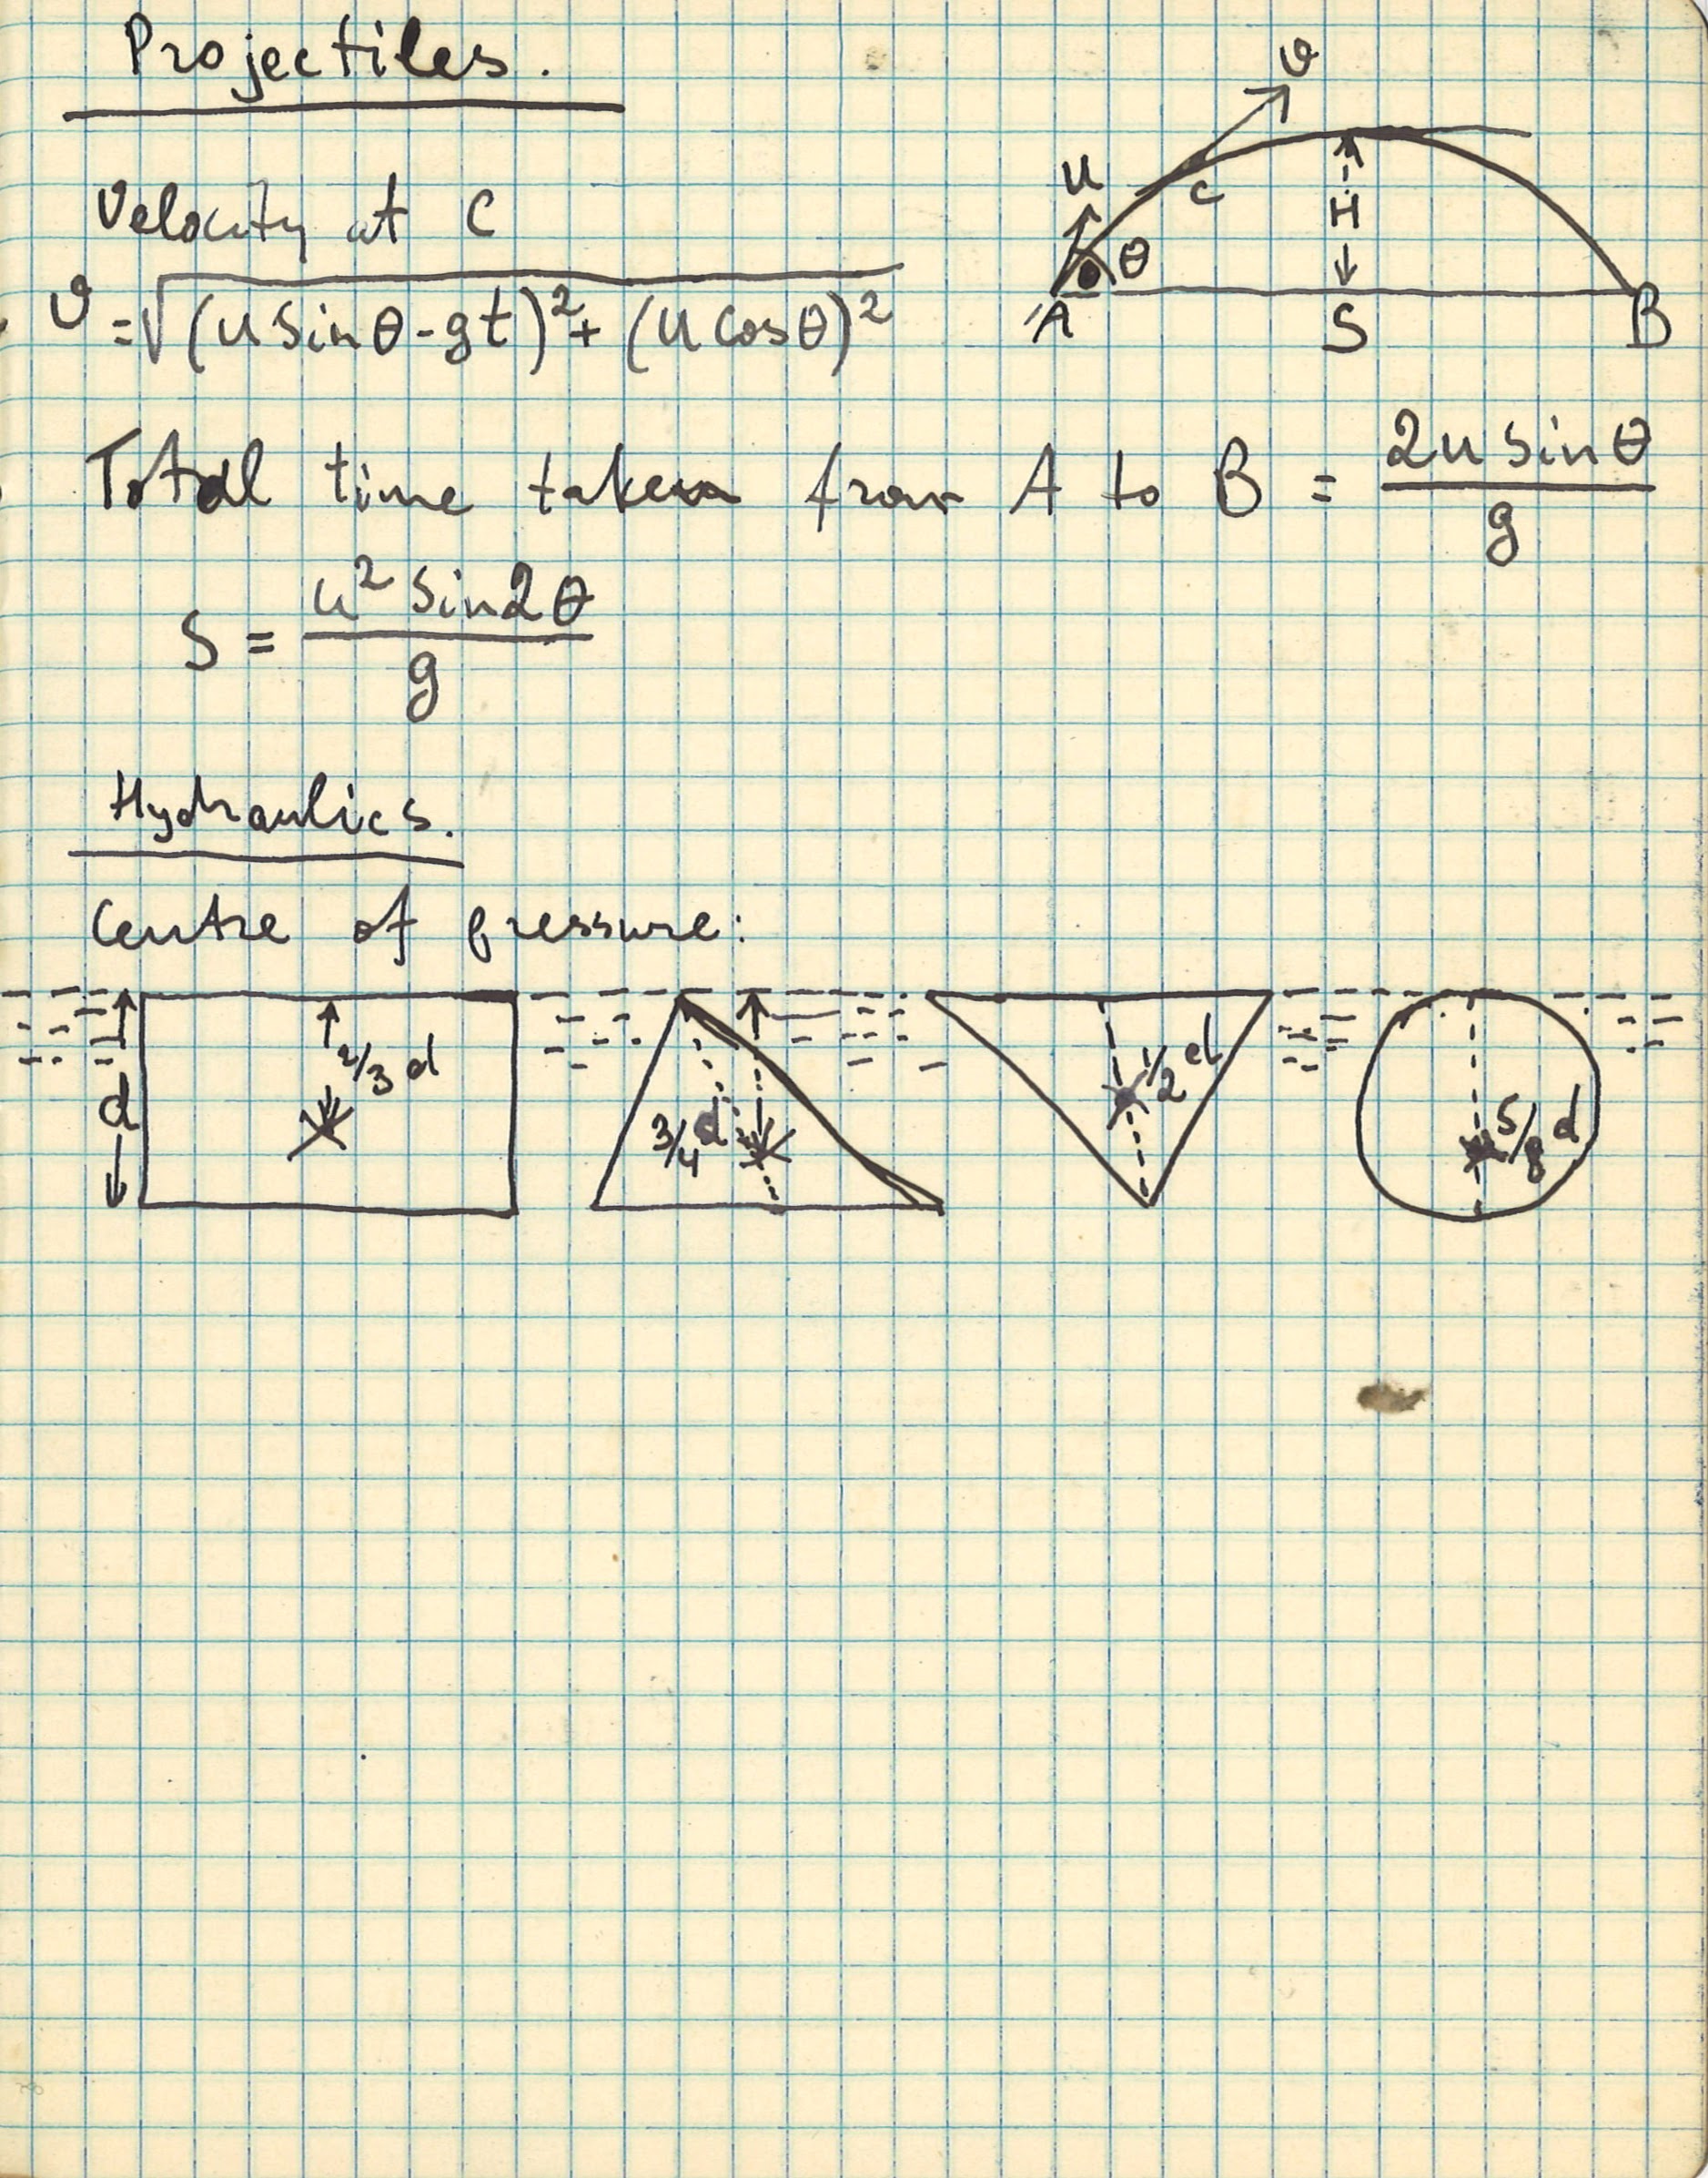 Projectiles.
υ
u
c
H
θ
A
S
B
Velocity at C
υ = √(u sinθ - gt)² + (u cosθ)²
Total time taken from A to B = 2u sinθ / g
S = u² sin2θ / g
Hydraulics.
Centre of pressure:
d
2/3 d
3/4 d
1/2 d
5/8 d